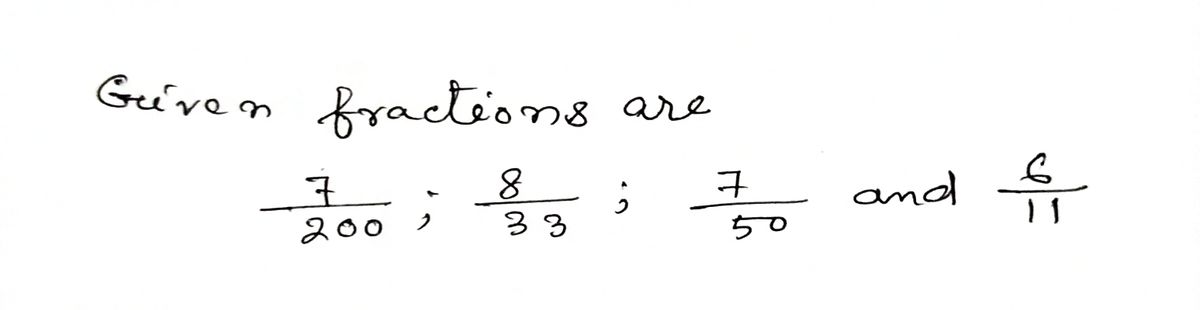 Given fractions are
7/200 ; 8/33 ; 7/50 and 6/11